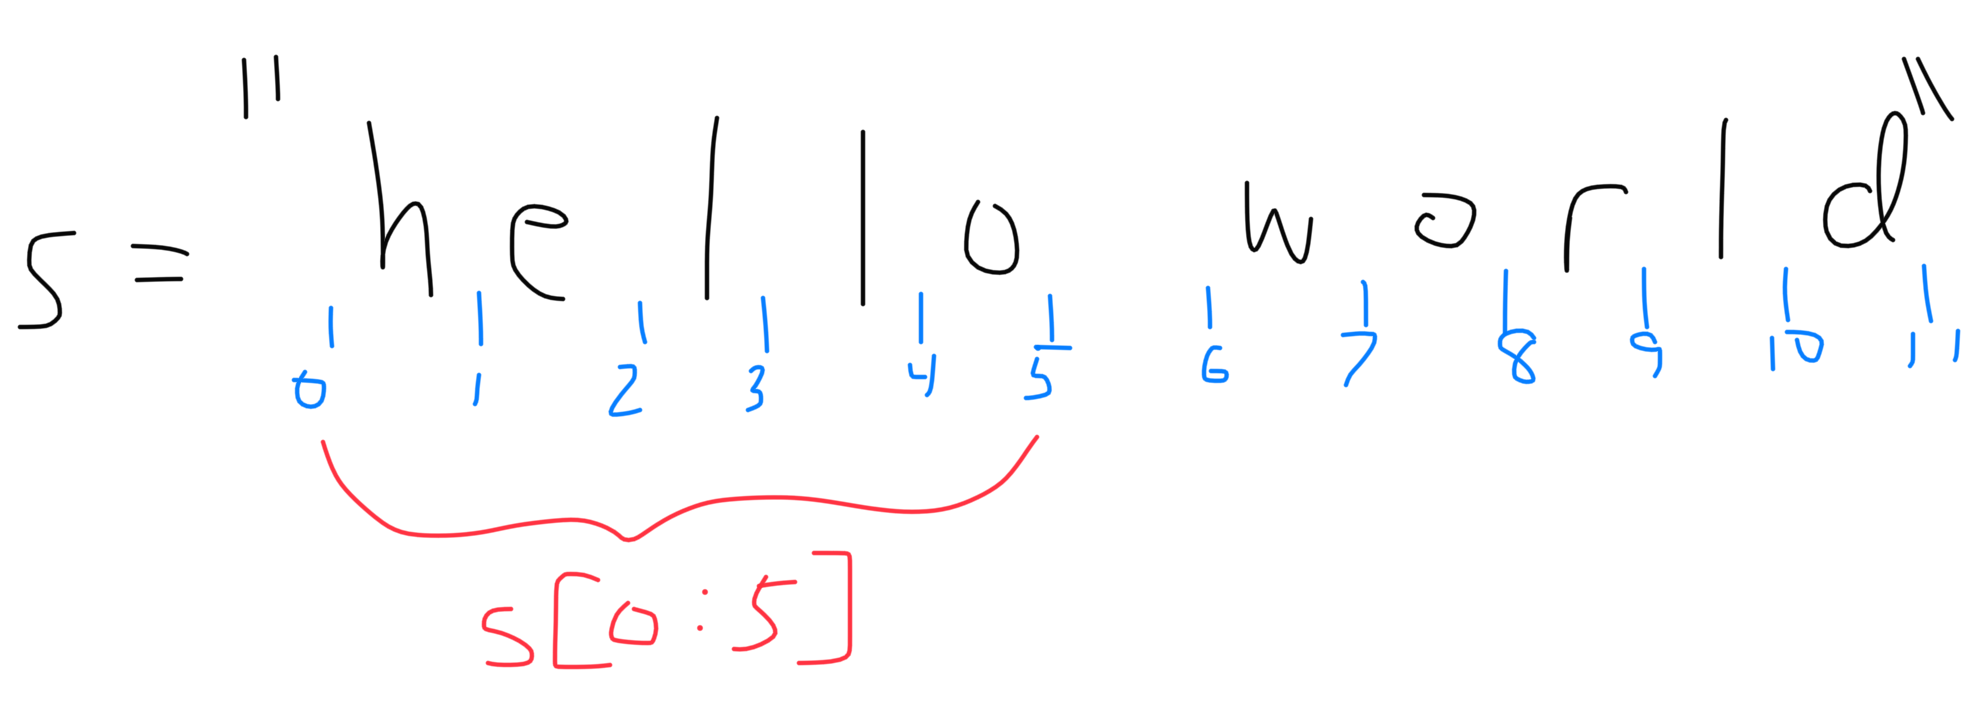 s = "hello world"
0 1 2 3 4 5 6 7 8 9 10 11
s[0:5]